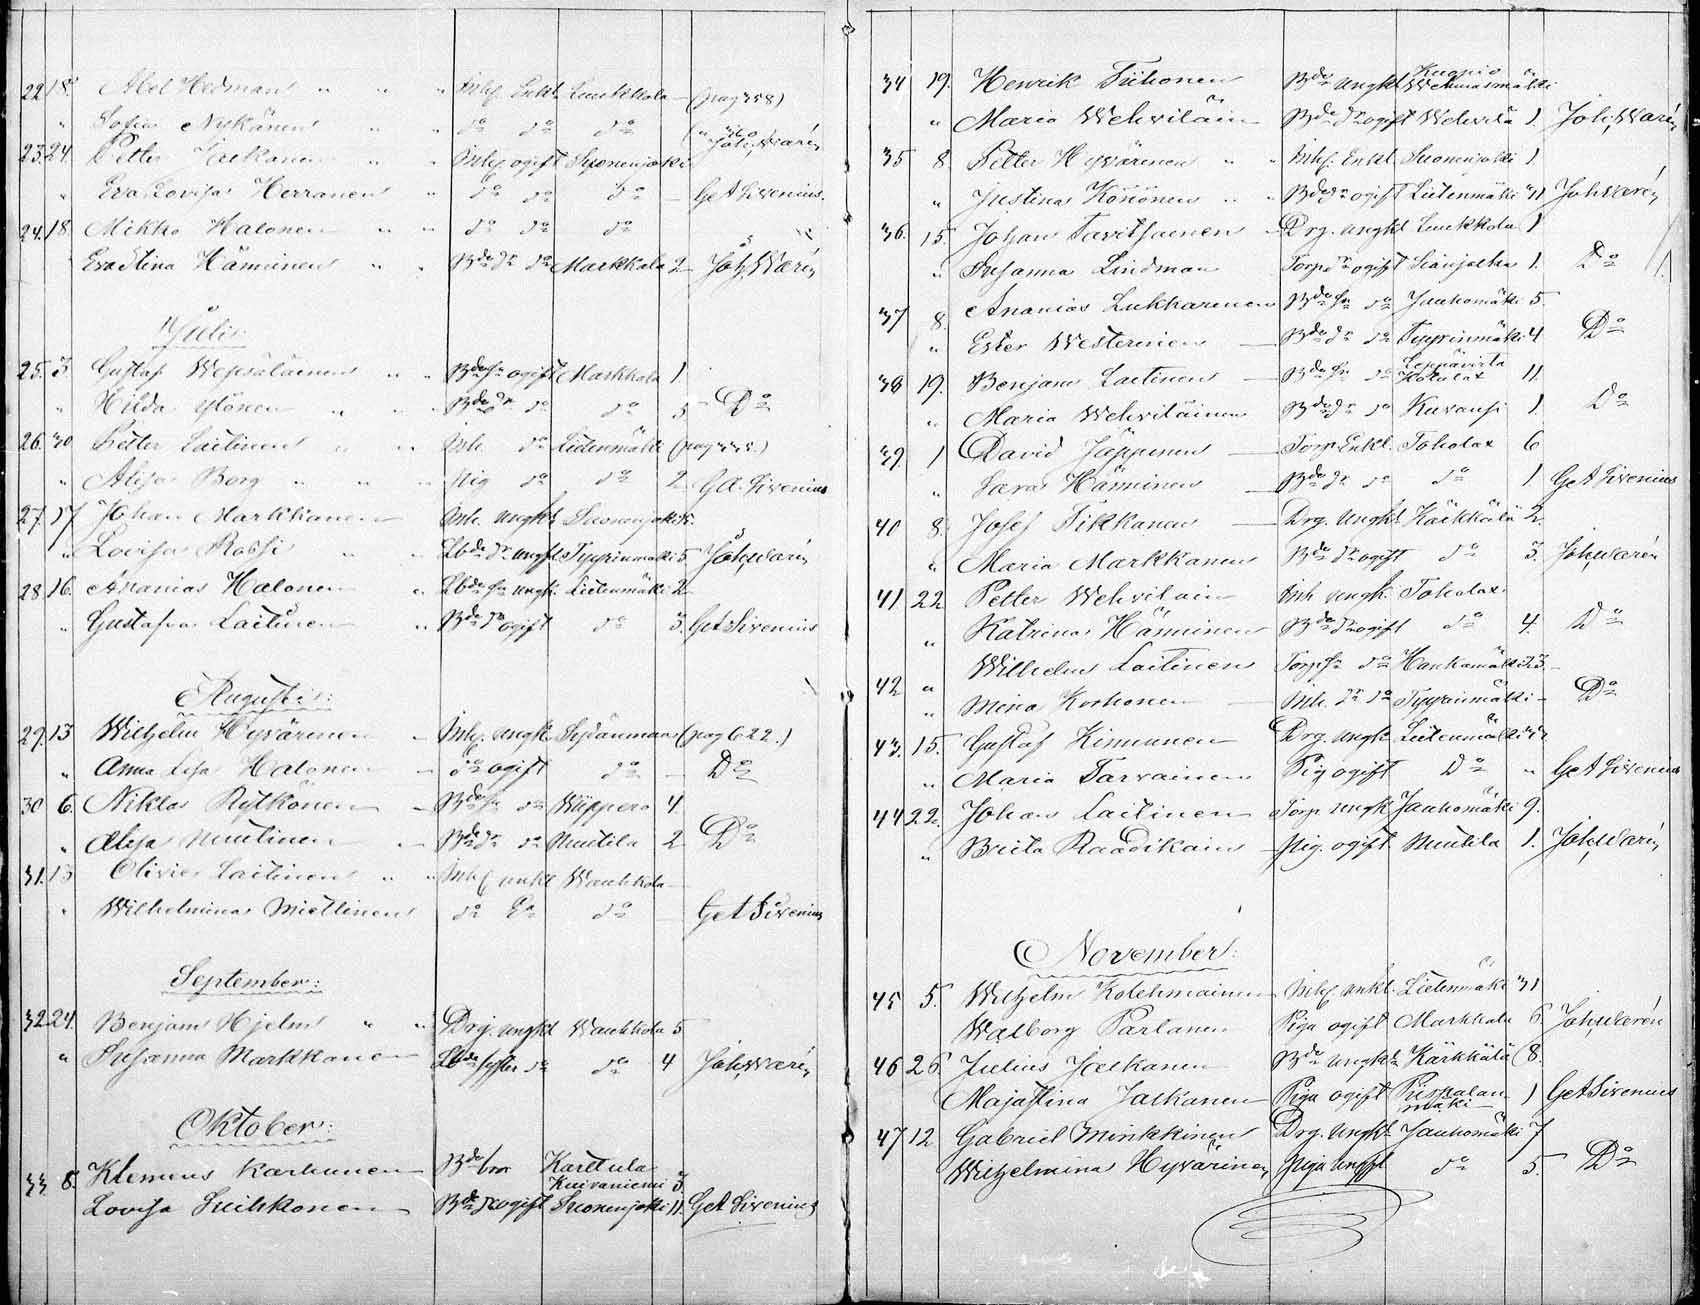 22 18. Abel Hedman " " " Inh. Enkl. Luukkola — (pag 358)
" Sofia Nykänen " " do do do
23. 24. Petter Jalkanen " " Inhs ogift Suonenjoki Joh. Warén
" Eva Lovisa Herranen " do do do — G A Sirenius.
24. 18. Mikko Halonen " " do do do
Eva Stina Hänninen " " Bde dr do Markkala 2 Joh. Warén
Juli:
25. 3. Gustaf Wepsäläinen " " Bde sn ogift Markkala 1
" Hilda Ylönen " " " Bde dr do do 5 Do
26. 30 Petter Laitinen " " Inh. do Lietenmäki
" Alisa Borg " " " pig do do 2 G A. Sirenius
27. 17 Johan Markkanen Inh. ungk. Suonenjoki
" Lovisa Rossi " " Lbde dr ungft Tyyrinmäki 5 Joh. Warén
28 16. Ananias Halonen " Lbde sn ungk. Lietenmäki 2
" Gustafva Laitinen " Bde dr ogift do 3. G A Sirenius
Augusti:
29. 13 Wilhelm Hyvärinen " Inhs. ungk. Sydänmaa (pag 622.)
" Anna Lisa Halonen — do ogift do — Do
30 6. Niklas Rytkönen — Bde sn do Wiippero 4
" Alisa Nuutinen — Bde dr do Nuutila 2 Do
31. 13 Olivier Laitinen " " Inhs enkl. Wauhkola —
" Wilhelmina Miettinen do Ea do — G A Sirenius
September:
32 24. Benjam Hjelm " " Drg. ungkl Wauhkola 5
" Susanna Markkanen Lbde syster do do 4 Joh. Warén
Oktober:
33 8. Klemens Karhunen Bde bror Karttula
Kuivaniemi 3.
Lovisa Suihkonen Bde dr ogift Suonenjoki 11. G A Sirenius
34 19. Henrik Tiihonen Bde ungkl Kuopio
Wehmasmäki
" Maria Wehviläin Bde dr ogift Wehvilä 1. Joh. Warén
35 8. Petter Hyvärinen " " Inhs. Enkl. Suonenjoki 1
" Justina Könönen " " Bde dr ogift Lietenmäki 21 Joh. Warén
36. 15. Johan Tavitsainen — Drg. ungkl Luukkola 1
" Susanna Lindman Torp dr ogift Sianjalka 1. Do
37 8. Ananias Lukkarinen Bde sn do Jauhomäki 5.
" Ester Westerinen — Bde dr do Tyyrinmäki 4 Do
38 19. Benjam Laitinen — Bde sn do Leppävirta
Kotalax 11
" Maria Wehviläinen Bde dr do Kuvansi 1. Do
39. 1 David Jäppinen — Torp. Enkl. Toholax 6
" Sara Hänninen — Bde dr do do 1 G A Sirenius
40 8. Josef Tikkanen — Drg. Ungkl Kärkkälä 2.
" Maria Markkanen Bde dr ogift do 3. Joh. Warén
41 22 Petter Wehviläin Inh ungk. Toholax
" Katrina Hänninen Bde dr ogift do 4. Do
42 " Wilhelm Laitinen Torp sn do Haukamäki 23.
" Mina Korhonen — Inh. dr do Tyyrinmäki — Do
43. 15. Gustaf Kinnunen Drg. ungk. Lietenmäki
" Maria Tarvainen Pig ogift Do " G A Sirenius
44 22. Johan Laitinen Torp ungk Jauhomäki 9.
" Brita Raadikain — pig. ogift Nuutila 1. Joh. Warén
November:
45 5. Wilhelm Kolehmainen Inhs. enkl. Lietenmäki 31
Walborg Partanen Piga ogift Markkala 6. Joh. Warén
46 26. Julius Jalkanen Bde ungkl Kärkkälä 8.
Maja Stina Jalkanen Piga ogift Piispalan
mäki 1 G A Sirenius
47 12. Gabriel Minkkinen Drg. ungkl. Jauhomäki 7
Wilhelmina Hyvärinen piga ungft do 5. Do